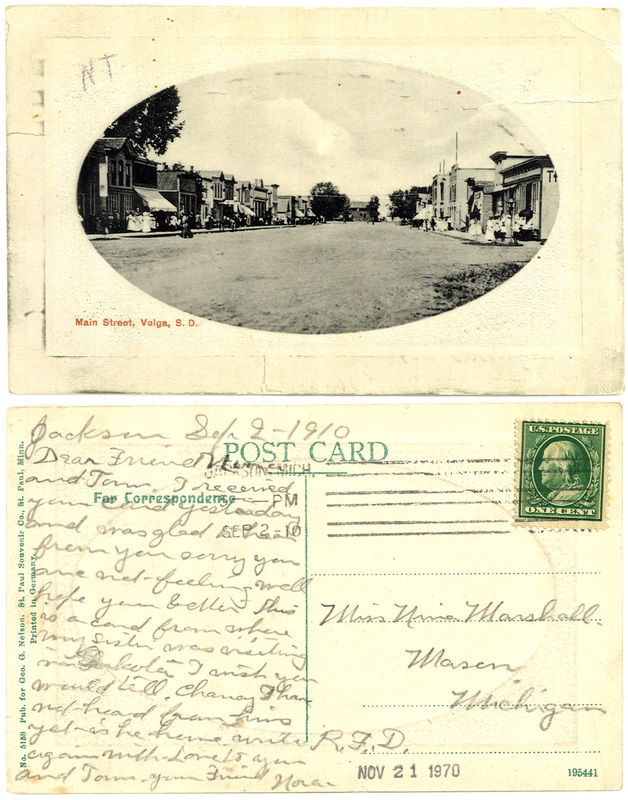 Main Street, Volga, S. D.
POST CARD
For Correspondence
U.S. POSTAGE
ONE CENT
JACKSON, MICH.
PM
SEP 2 - 10
Jackson Sep 2 - 1910
Dear Friend
and Tom, I received
your card yesterday
and was glad to hear
from you sorry you
are not feeling well
hope your better this
is a card from where
my sister was visiting
in Dakota I wish you
would tell Chancy I have
not heard from him
yet is he home write
again with Love to you
and Tom your Friend Nora
Miss Nina Marshall.
Mason
Michigan
R.F.D.
NOV 21 1970
195441
No. 5158 Pub. for Geo. G. Nelson, St. Paul Souvenir Co., St. Paul, Minn.
Printed in Germany.